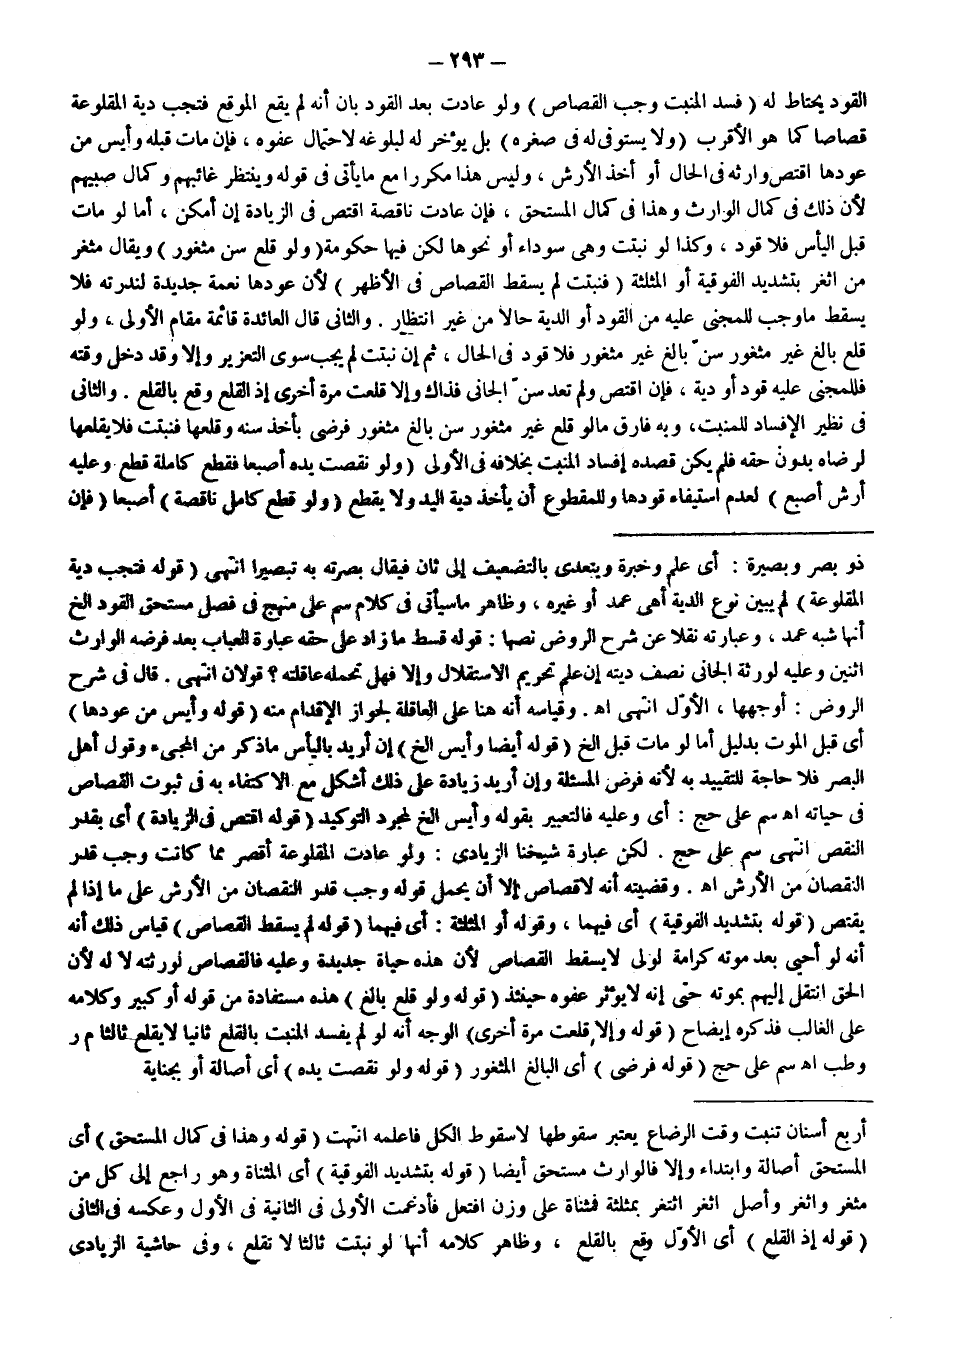 – ٢٩٣ –
القود يحتاط له ( فسد المنبت وجب القصاص ) ولو عادت بعد القود بان أنه لم يقع الموقع فتجب دية المقلوعة
قصاصا كما هو الأقرب ( ولا يستوفى له فى صغره ) بل يؤخر له لبلوغه لاحتمال عفوه ، فإن مات قبله وأيس من
عودها اقتص وارثه فى الحال أو أخذ الأرش ، وليس هذا مكررا مع ما يأتى فى قوله وينتظر غائبهم وكمال صبيهم
لأن ذلك فى كمال الوارث وهذا فى كمال المستحق ، فإن عادت ناقصة اقتص فى الزيادة إن أمكن ، أما لو مات
قبل اليأس فلا قود ، وكذا لو نبتت وهى سوداء أو نحوها لكن فيها حكومة ( ولو قلع سن مثغور ) ويقال مثغر
من اثغر بتشديد الفوقية أو المثلثة ( فنبتت لم يسقط القصاص فى الأظهر ) لأن عودها نعمة جديدة لندرته فلا
يسقط ماوجب للمجنى عليه من القود أو الدية حالا من غير انتظار . والثانى قال العائدة قائمة مقام الأولى ، ولو
قلع بالغ غير مثغور سنّ بالغ غير مثغور فلا قود فى الحال ، ثم إن نبتت لم يجب سوى التعزير وإلا وقد دخل وقته
فللمجنى عليه قود أو دية ، فإن اقتص ولم تعد سنّ الجانى فذاك وإلا قلعت مرة أخرى إذ القلع وقع بالقلع . والثانى
فى نظير الإفساد للمنبت، وبه فارق مالو قلع غير مثغور سن بالغ مثغور فرضى بأخذ سنه وقلعها فنبتت فلا يقلعها
لرضاه بدون حقه فلم يكن قصده إفساد المنبت بخلافه فى الأولى ( ولو نقصت يده أصبعا فقطع كاملة قطع وعليه
أرش أصبع ) لعدم استيفاء قودها وللمقطوع أن يأخذ دية اليد ولا يقطع ( ولو قطع كامل ناقصة ) أصبعا ( فإن
ذو بصر وبصيرة : أى علم وخبرة ويتعدى بالتضعيف إلى ثان فيقال بصرته به تبصيرا انتهى ( قوله فتجب دية
المقلوعة ) لم يبين نوع الدية أهى عمد أو غيره ، وظاهر ماسيأتى فى كلام سم على منهج فى فصل مستحق القود الخ
أنها شبه عمد ، وعبارته نقلا عن شرح الروض نصها : قوله قسط ما زاد على حقه عبارة العباب بعد فرضه الوارث
اثنين وعليه لورثة الجانى نصف ديته إن علم تحريم الاستقلال وإلا فهل تحمله عاقلته ؟ قولان انتهى . قال فى شرح
الروض : أوجهها ، الأوّل انتهى اه . وقياسه أنه هنا على العاقلة لجواز الإقدام منه ( قوله وأيس من عودها )
أى قبل الموت بدليل أما لو مات قبل الخ ( قوله أيضا وأيس الخ ) إن أريد باليأس ماذكر من المجىء وقول أهل
البصر فلا حاجة للتقييد به لأنه فرض المسئلة وإن أريد زيادة على ذلك أشكل مع الاكتفاء به فى ثبوت القصاص
فى حياته اه سم على حج : أى وعليه فالتعبير بقوله وأيس الخ لمجرد التوكيد ( قوله اقتص فى الزيادة ) أى بقدر
النقص انتهى سم على حج . لكن عبارة شيخنا الزيادى : ولو عادت المقلوعة أقصر مما كانت وجب قدر
النقصان من الأرش اه . وقضيته أنه لاقصاص إلا أن يحمل قوله وجب قدر النقصان من الأرش على ما إذا لم
يقتص ( قوله بتشديد الفوقية ) أى فيهما ، وقوله أو المثلثة : أى فيهما ( قوله لم يسقط القصاص ) قياس ذلك أنه
أنه لو أحيى بعد موته كرامة لولى لايسقط القصاص لأن هذه حياة جديدة وعليه فالقصاص لورثته لا له لأن
الحق انتقل إليهم بموته حتى إنه لايؤثر عفوه حينئذ ( قوله ولو قلع بالغ ) هذه مستفادة من قوله أو كبير وكلامه
على الغالب فذكره إيضاح ( قوله وإلا قلعت مرة أخرى) الوجه أنه لو لم يفسد المنبت بالقلع ثانيا لايقلع ثالثا م ر
وطب اه سم على حج ( قوله فرضى ) أى البالغ المثغور ( قوله ولو نقصت يده ) أى أصالة أو بجناية
أربع أسنان تنبت وقت الرضاع يعتبر سقوطها لاسقوط الكل فاعلمه انتهت ( قوله وهذا فى كمال المستحق ) أى
المستحق أصالة وابتداء وإلا فالوارث مستحق أيضا ( قوله بتشديد الفوقية ) أى المثناة وهو راجع إلى كل من
مثغر واثغر وأصل اثغر اثتغر بمثلثة فمثناة على وزن افتعل فأدغمت الأولى فى الثانية فى الأول وعكسه فى الثانى
( قوله إذ القلع ) أى الأوّل وقع بالقلع ، وظاهر كلامه أنها لو نبتت ثالثا لا تقلع ، وفى حاشية الزيادى